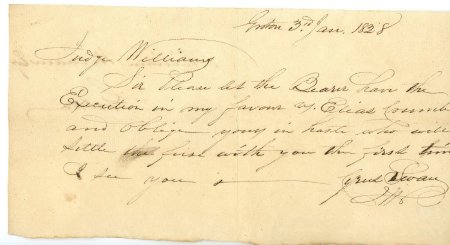 3.d Jan. 1828
Judge Williams
Sir Please let the Bearer have the
Execution in my favour vs. Elias
and oblige yours in haste who will
settle the fees with you the first time
I see you
Cyrus Swan